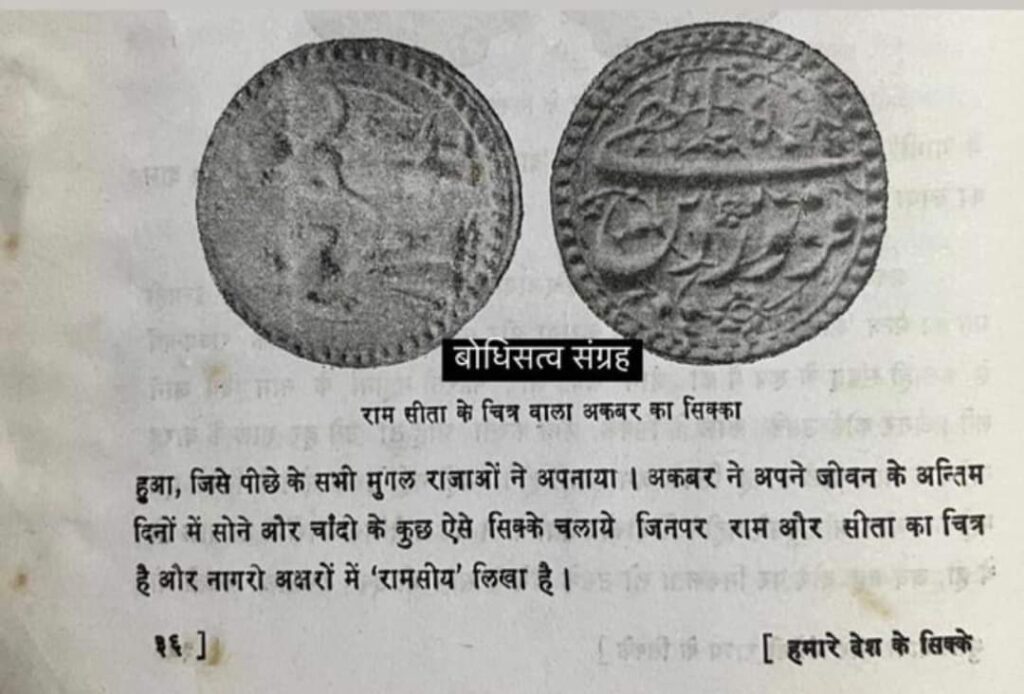 बोधिसत्व संग्रह
राम सीता के चित्र वाला अकबर का सिक्का
हुआ, जिसे पीछे के सभी मुगल राजाओं ने अपनाया । अकबर ने अपने जीवन के अन्तिम
दिनों में सोने और चांदो के कुछ ऐसे सिक्के चलाये जिनपर राम और सीता का चित्र
है और नागरो अक्षरों में ‘रामसीय’ लिखा है ।
३६ ]
[ हमारे देश के सिक्के